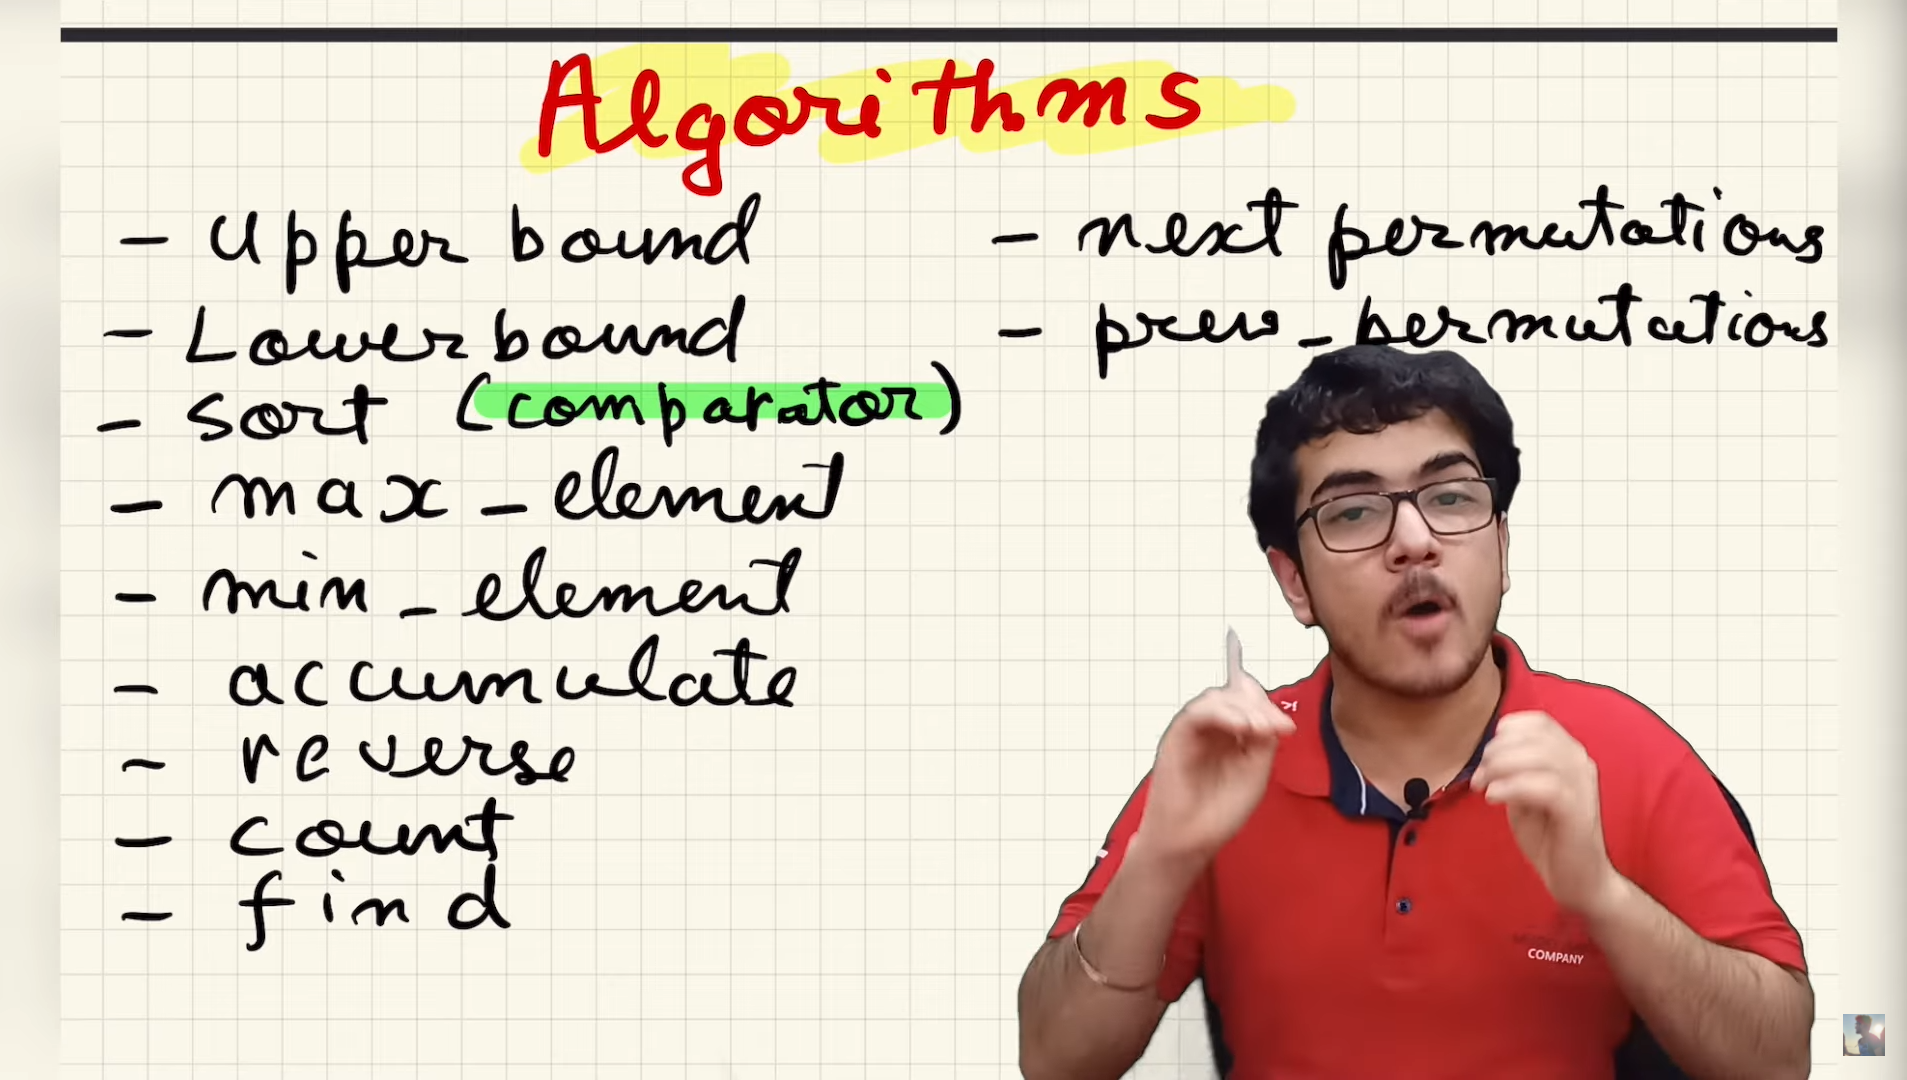 Algorithms
- Upper bound
- Lower bound
- sort (comparator)
- max_element
- min_element
- accumulate
- reverse
- count
- find
- next permutations
- prev_permutations
COMPANY